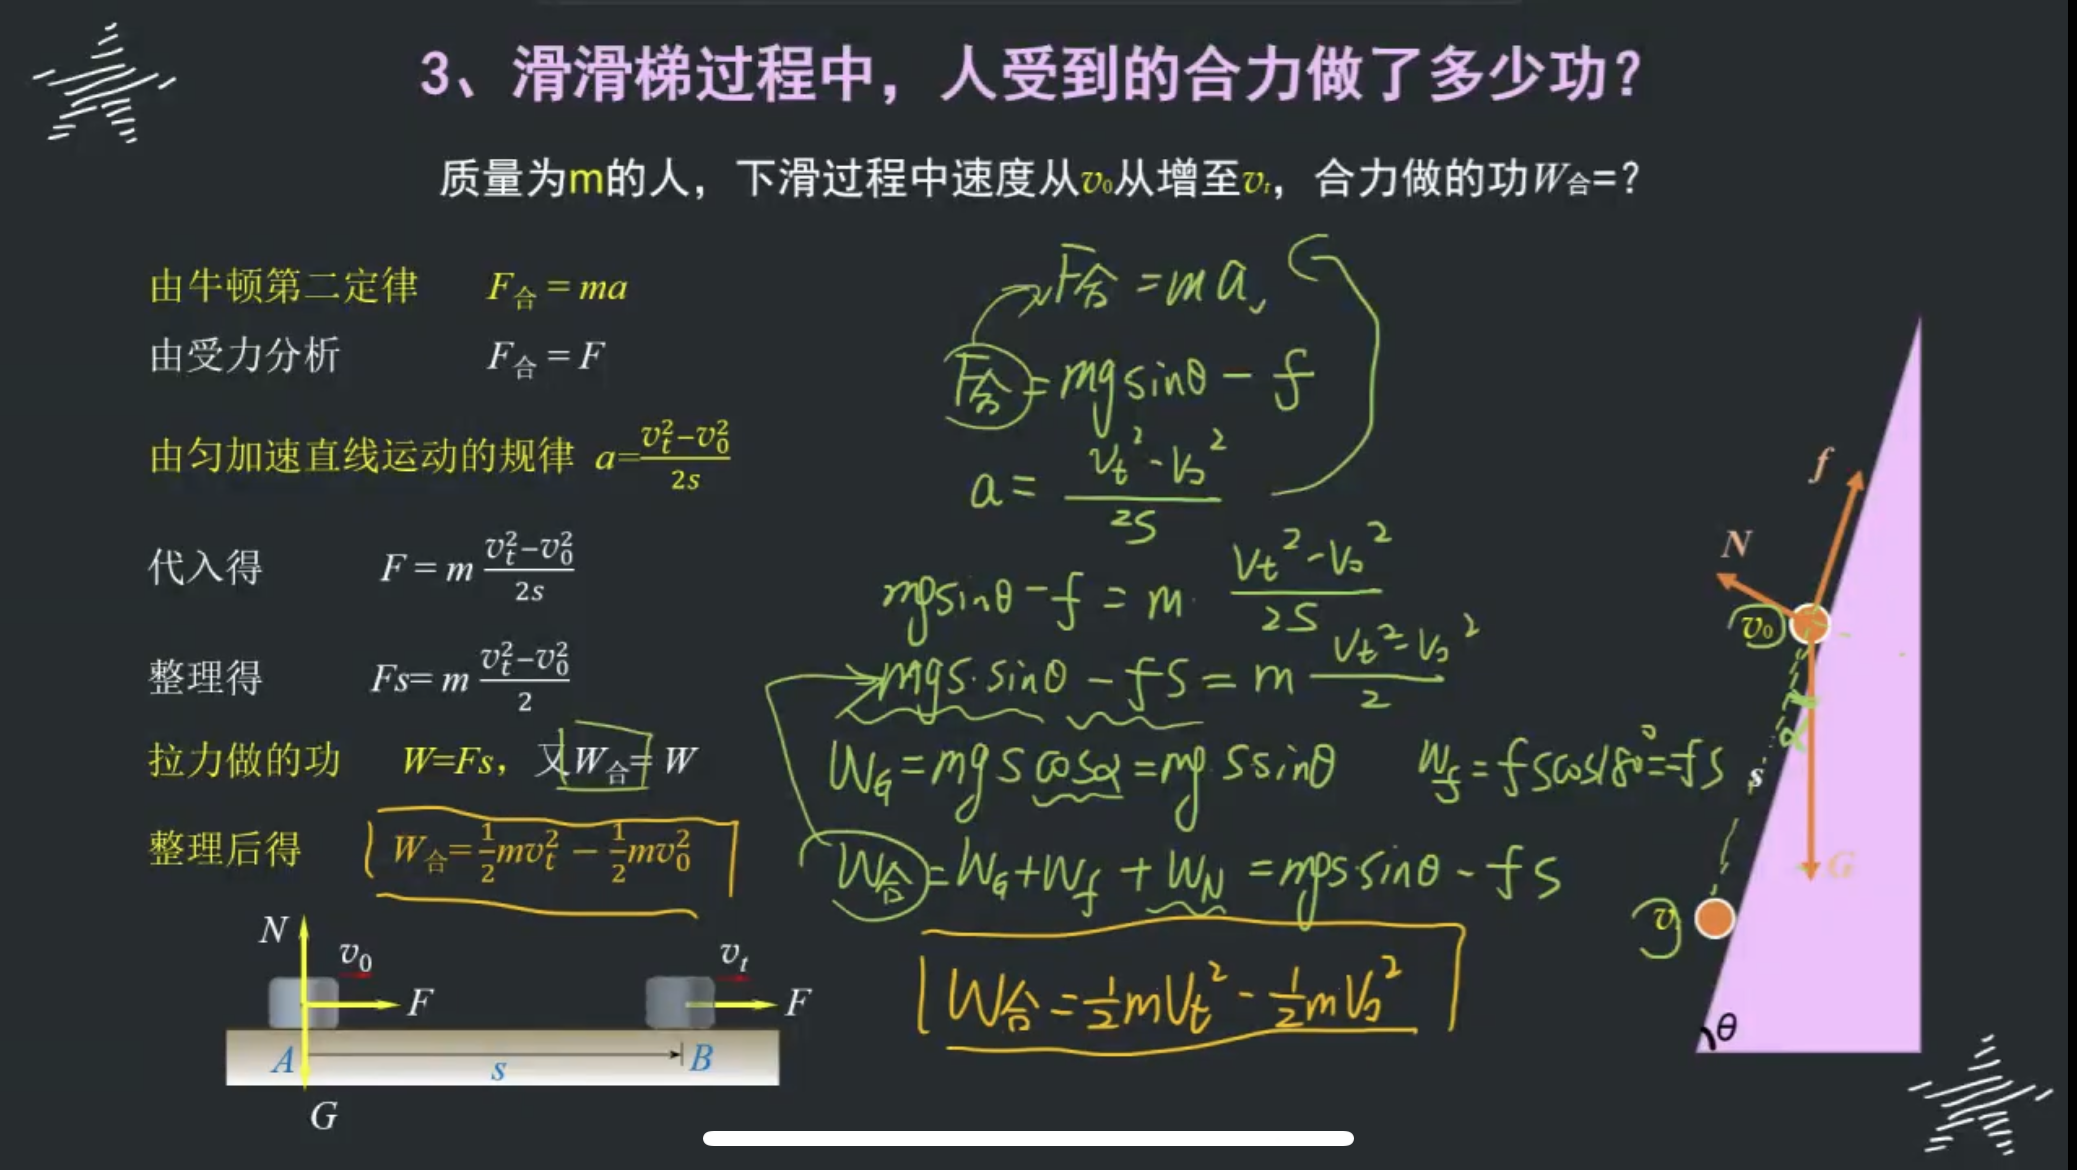 3、滑滑梯过程中，人受到的合力做了多少功？
质量为m的人，下滑过程中速度从v₀从增至vₜ，合力做的功W合=？
由牛顿第二定律 F合 = ma
由受力分析 F合 = F
由匀加速直线运动的规律 a=(vₜ²−v₀²)/2s
代入得 F = m (vₜ²−v₀²)/2s
整理得 Fs= m (vₜ²−v₀²)/2
拉力做的功 W=Fs，又W合= W
整理后得 W合=½mvₜ² − ½mv₀²
N
v₀
F
vₜ
F
A
s
B
G
F合 = ma,
F合 = mgsinθ − f
a = (Vₜ² - V₀²)/2S
mgsinθ − f = m· (Vₜ² - V₀²)/2S
mgs·sinθ − fs = m (Vₜ² - V₀²)/2
W_G = mgscosα = mg·ssinθ W_f = fscos180° = -fs
W合 = W_G + W_f + W_N = mgs·sinθ − fs
W合 = ½mVₜ² - ½mV₀²
f
N
v₀
α
s
G
v
θ